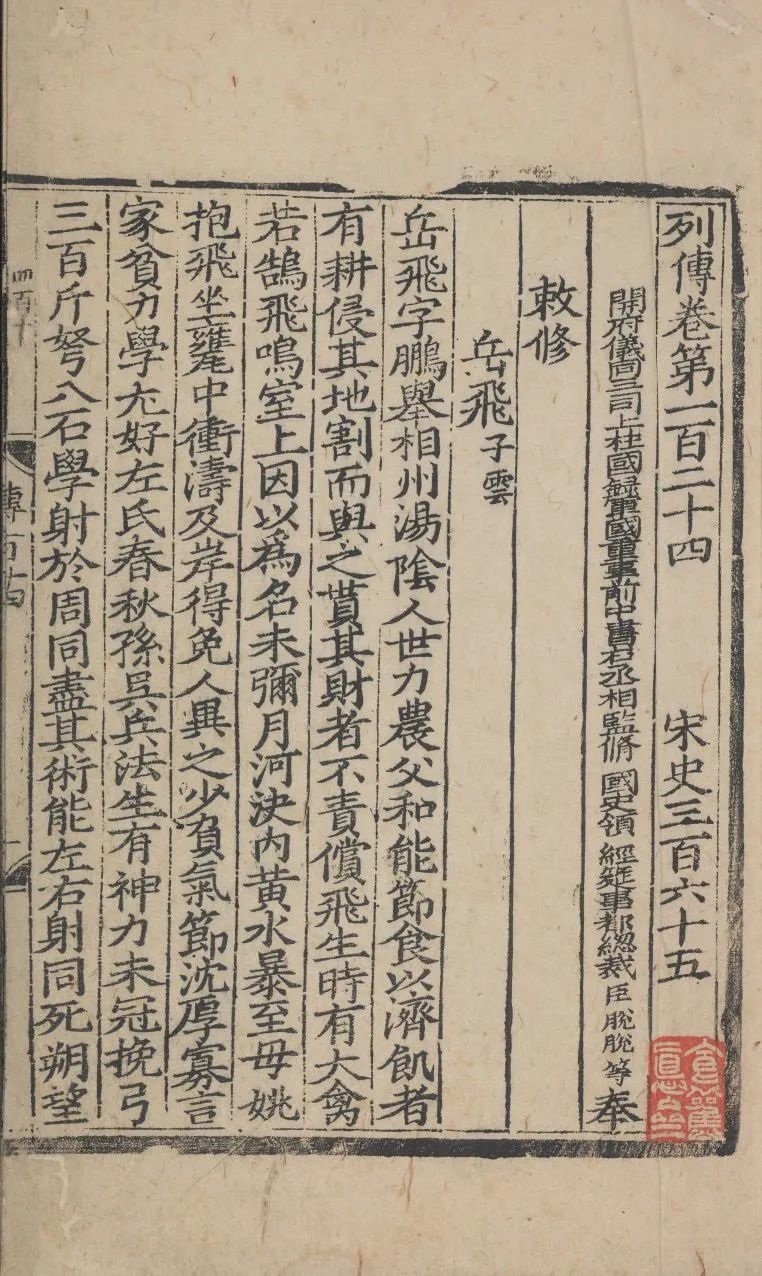 列傳卷第一百二十四　宋史三百六十五
開府儀同三司上柱國録軍國重事前中書右丞相監脩　國史領　經筵事都總裁臣脫脫等奉
敕修
岳飛子雲
岳飛字鵬舉相州湯陰人世力農父和能節食以濟飢者
有耕侵其地割而與之貰其財者不責償飛生時有大禽
若鵠飛鳴室上因以爲名未彌月河決内黃水暴至母姚
抱飛坐甕中衝濤及岸得免人異之少負氣節沈厚寡言
家貧力學尤好左氏春秋孫吳兵法生有神力未冠挽弓
三百斤弩八石學射於周同盡其術能左右射同死朔望